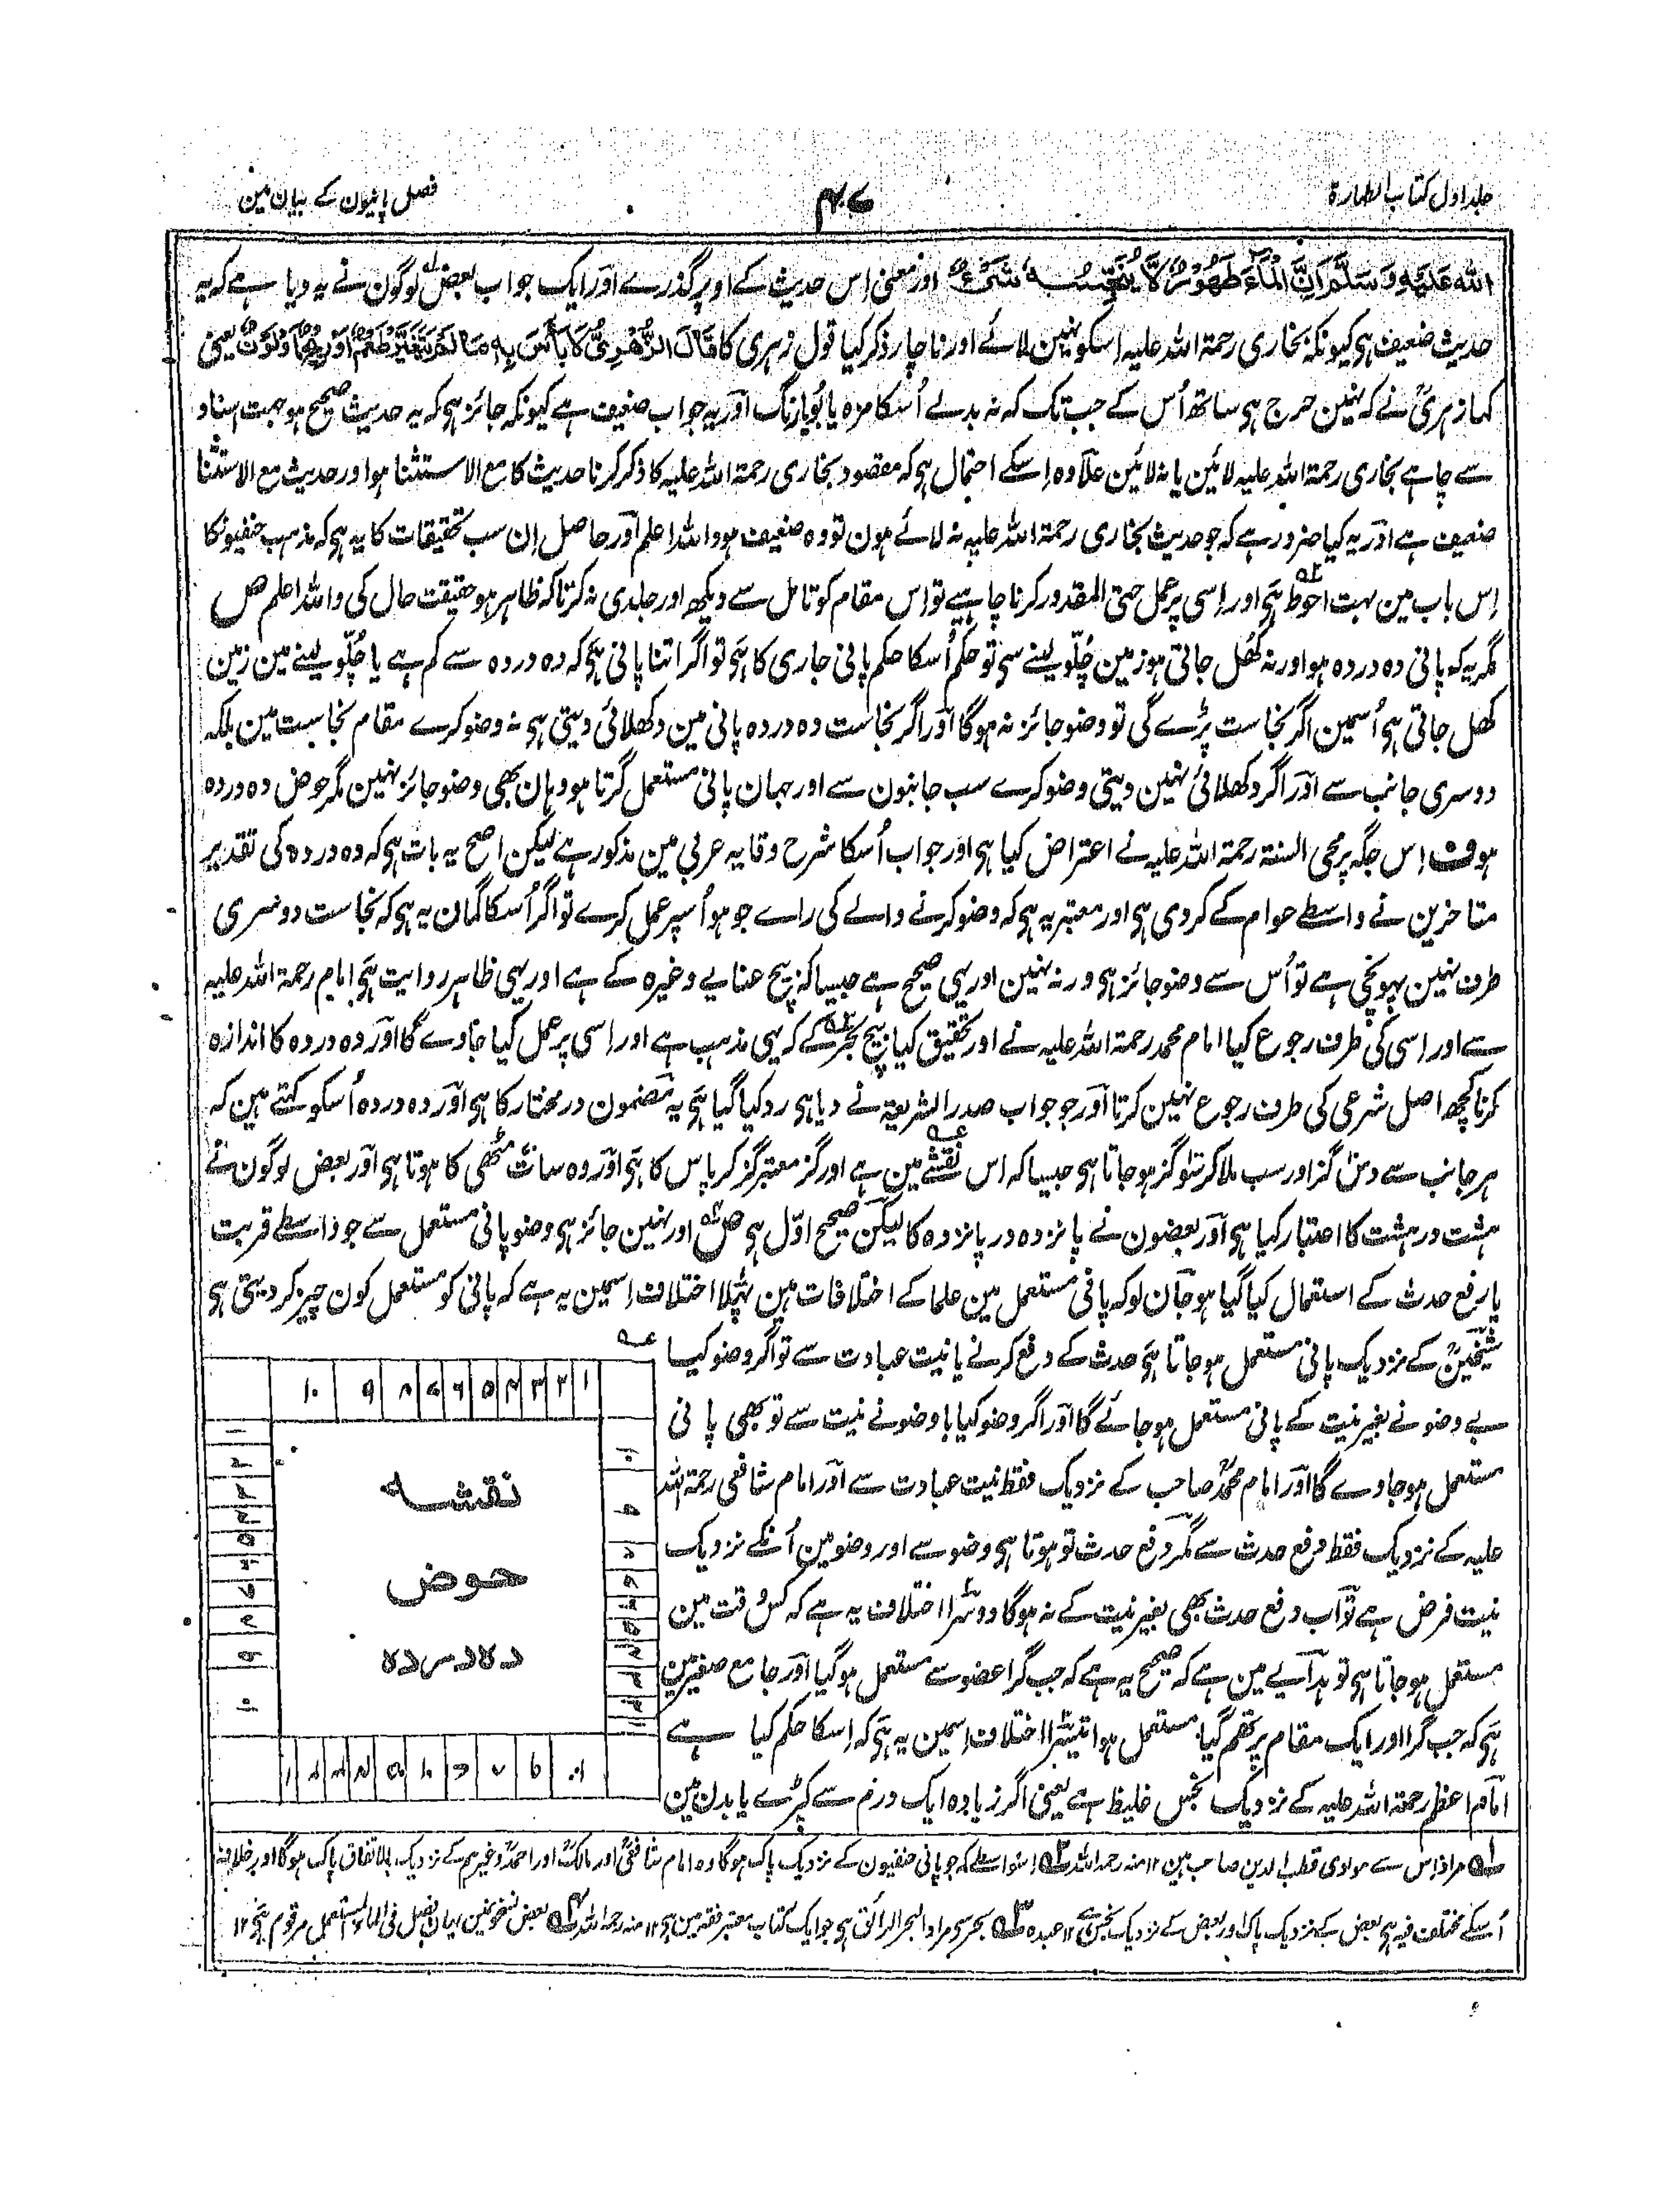 جلد اول کتاب الطہارة
۴۷
فصل پانیون کے بیان مین
اللہ عَلَیْہِ وَسَلَّمَ اِنَّ الْمَاءَ طَھُوْرٌ لَّا یُنَجِّسُہٗ شَیْءٌ اور معنی اِس حدیث کے اوپر گذرے اور ایک جواب بعض لوگون نے یہ دیا ہے کہ یہ
حدیث ضعیف ہی کیونکہ بخاری رحمۃ اللہ علیہ اِسکو نہین لائے اور ناچار ذکر کیا قول زہری کا قَالَ الزُّھْرِیُّ لَا بَأْسَ بِہٖ مَا لَمْ یَتَغَیَّرْ طَعْمٌ اَوْ رِیْحٌ اَوْ لَوْنٌ یعنی
کہا زہریؒ نے کہ نہین حرج ہی ساتھ اُس کے جب تک کہ نہ بدلے اُسکا مزہ یا بُو یا رنگ اور یہ جواب ضعیف ہے کیونکہ جائز ہی کہ یہ حدیث صحیح ہو جہت اسناد
سے چاہے بخاری رحمۃ اللہ علیہ لائین یا نہ لائین علاوہ اِسکے احتمال ہی کہ مقصود بخاری رحمۃ اللہ علیہ کا ذکر کرنا حدیث کا مع الاستثنا ہو اور حدیث مع الاستثنا
ضعیف ہے اور یہ کیا ضرور ہے کہ جو حدیث بخاری رحمۃ اللہ علیہ نہ لائے ہون تو وہ ضعیف ہو واللہ اعلم اور حاصل اِن سب تحقیقات کا یہ ہی کہ مذہب حنفیونکا
اِس باب مین بہت احوط ہی اور اِسی پر عمل حتی المقدور کرنا چاہیے تو اِس مقام کو تامل سے دیکھ اور جلدی نہ کر تاکہ ظاہر ہو حقیقت حال کی واللہ اعلم ص
مگر یہ کہ پانی دہ در دہ ہو اور نہ کھل جاتی ہو زمین چُلّو لینے سی تو حکم اُسکا حکم پانی جاری کا ہی تو اگر اتنا پانی ہی کہ دہ در دہ سے کم ہے یا چُلّو لینے مین زمین
کھل جاتی ہی اُسمین اگر نجاست پڑے گی تو وضو جائز نہ ہوگا اور اگر نجاست دہ در دہ پانی مین دکھلائی دیتی ہی نہ وضو کرے مقام نجاست مین بلکہ
دوسری جانب سے اور اگر دکھلائی نہین دیتی وضو کرے سب جانبون سے اور جہان پانی مستعمل گرتا ہو وہان بھی وضو جائز نہین مگر حوض دہ در دہ
ہو ف اِس جگہ پر محی السنۃ رحمۃ اللہ علیہ نے اعتراض کیا ہی اور جواب اُسکا شرح وقایہ عربی مین مذکور ہے لیکن اصح یہ بات ہی کہ دہ در دہ کی تقدیر
متاخرین نے واسطے عوام کے کردی ہی اور معتبر یہ ہی کہ وضو کرنے والے کی راے جو ہو اُسپر عمل کرے تو اگر اُسکا گمان یہ ہی کہ نجاست دوسری
طرف نہین پہونچی ہے تو اُس سے وضو جائز ہی ورنہ نہین اور یہی صحیح ہے جیسا کہ بیچ عنایے وغیرہ کے ہے اور یہی ظاہر روایت ہی امام رحمۃ اللہ علیہ
سے اور اِسی کی طرف رجوع کیا امام محمد رحمۃ اللہ علیہ نے اور تحقیق کیا بیچ بحر کے کہ یہی مذہب ہے اور اِسی پر عمل کیا جاوے گا اور دہ در دہ کا اندازہ
کرنا کچھ اصل شرعی کی طرف رجوع نہین کرتا اور جو جواب صدر الشریعۃ نے دیا ہی رد کیا گیا ہی یہ مضمون در مختار کا ہی اور دہ در دہ اُسکو کہتے ہین کہ
ہر جانب سے دس گز اور سب ملاکر سو گز ہوجاتا ہی جیسا کہ اس نقشے مین ہے اور گز معتبر گز کرپاس کا ہی اور وہ سات مٹھی کا ہوتا ہی اور بعض لوگون نے
ہشت در ہشت کا اعتبار کیا ہی اور بعضون نے پانزدہ در پانزدہ کا لیکن صحیح اوّل ہی ص اور نہین جائز ہی وضو پانی مستعمل سے جو واسطے قربت
یا رفع حدث کے استعمال کیا گیا ہو جان لو کہ پانی مستعمل مین علما کے اختلافات ہین پہلا اختلاف اِسمین یہ ہے کہ پانی کو مستعمل کون چیز کر دیتی ہی
شیخینؒ کے نزدیک پانی مستعمل ہوجاتا ہی حدث کے دفع کرنے یا نیت عبادت سے تو اگر وضو کیا
بے وضو نے بغیر نیت کے پانی مستعمل ہوجائے گا اور اگر وضو کیا با وضو نے نیت سے تو بھی پانی
مستعمل ہوجاوے گا اور امام محمدؒ صاحب کے نزدیک فقط نیت عبادت سے اور امام شافعی رحمۃ اللہ
علیہ کے نزدیک فقط رفع حدث سے مگر رفع حدث تو ہوتا ہی وضو سے اور وضو مین اُنکے نزدیک
نیت فرض ہے تو اب رفع حدث بھی بغیر نیت کے نہ ہوگا دوسرا اختلاف یہ ہے کہ کس وقت مین
مستعمل ہوجاتا ہی تو ہدایے مین ہے کہ صحیح یہ ہے کہ جب گرا عضو سے مستعمل ہوگیا اور جامع صغیر مین
ہی کہ جب گرا اور ایک مقام پر تھم گیا مستعمل ہوا تیسرا اختلاف اِسمین یہ ہی کہ اِسکا حکم کیا ہے
امام اعظم رحمۃ اللہ علیہ کے نزدیک نجس غلیظ ہے یعنی اگر زیادہ ایک درم سے کپڑے یا بدن مین
۱ ۲ ۳ ۴ ۵ ۶ ۷ ۸ ۹ ۱۰
نقشہ
حوض
دہ در دہ
۱ ۲ ۳ ۴ ۵ ۶ ۷ ۸ ۹ ۱۰
۱ ۲ ۳ ۴ ۵ ۶ ۷ ۸ ۹ ۱۰
۱ ۲ ۳ ۴ ۵ ۶ ۷ ۸ ۹ ۱۰
۱ مراد اِس سے مولوی قطب الدین صاحب ہین ۱۲ منہ رحمہ اللہ ۲ اِسواسطے کہ جو پانی حنفیون کے نزدیک پاک ہوگا وہ امام شافعیؒ اور مالکؒ اور احمدؒ وغیرہم کے نزدیک بالاتفاق پاک ہوگا اور خلاف
اُسکے مختلف فیہ ہی بعض کے نزدیک پاک اور بعض کے نزدیک نجس ہے ۱۲ عبدہ ۳ بحر سی مراد البحر الرائق ہی جو ایک کتاب معتبر فقہ مین ہی ۱۲ منہ رحمہ اللہ ۴ بعض نسخون مین یہان فصل فی الماء المستعمل مرقوم ہی ۱۲